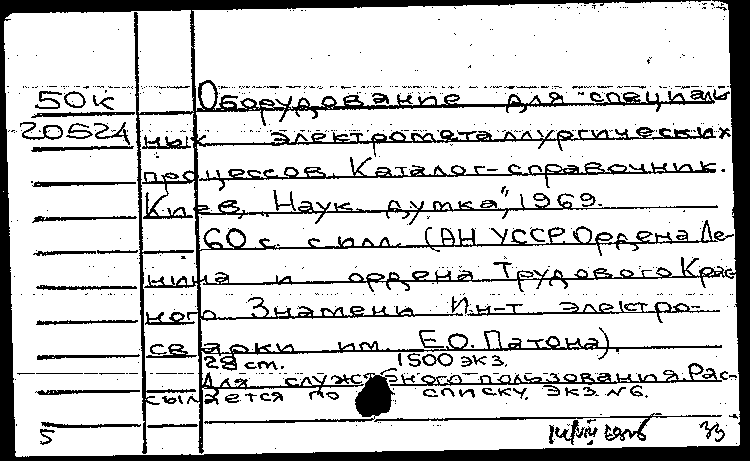 50К Оборудование для специаль-
20524 ных электрометаллургических
процессов. Каталог-справочник.
Киев, "Наук. думка", 1969.
60 с. с илл. (АН УССР. Ордена Ле-
нина и ордена Трудового Крас-
ного Знамени Ин-т электро-
сварки им. Е.О. Патона).
28 cm. 1500 экз.
Для служебного пользования. Рас-
сылается по списку. Экз. №6.
5 33